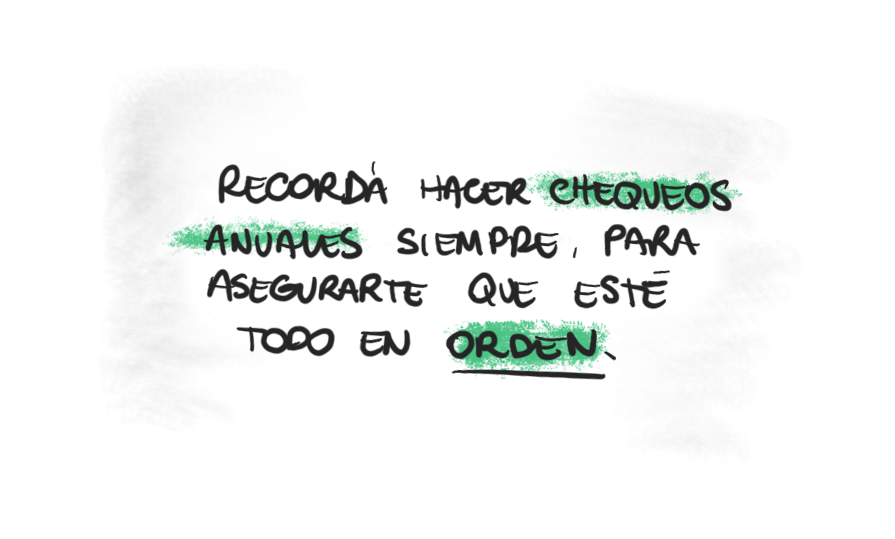 RECORDÁ HACER CHEQUEOS
ANUALES SIEMPRE, PARA
ASEGURARTE QUE ESTÉ
TODO EN ORDEN.